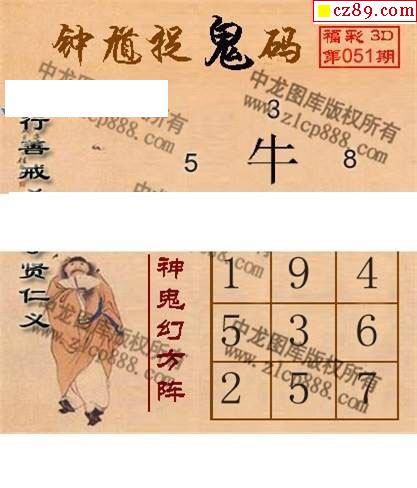 cz89.com
钟馗捉鬼码
福彩 3D
第051期
中龙图库版权所有
www.zlcp888.com
行善戒
3
5 牛 8
贤仁义
神鬼幻方阵
1 9 4
5 3 6
2 5 7
中龙图库版权所有
www.zlcp888.com